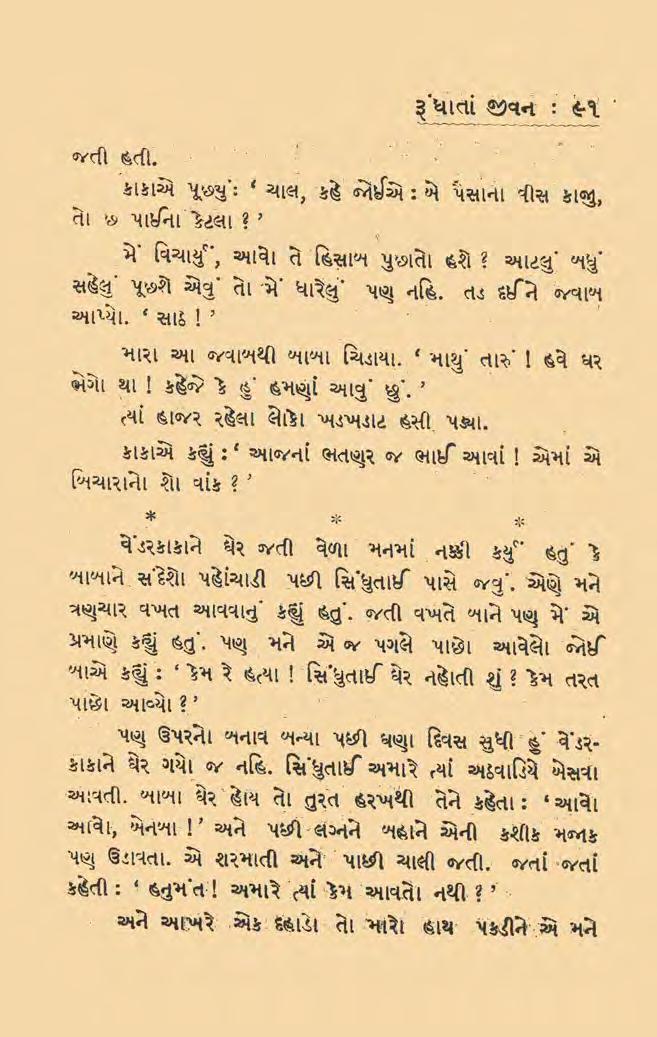 રૂંધાતાં જીવન : ૯૧
જતી હતી.
કાકાએ પૂછયું : ‘ ચાલ, કહે જોઈએ : બે પૈસાના વીસ કાજુ,
તો છ પાઈના કેટલા ? ’
મેં વિચાર્યું, આવો તે હિસાબ પુછાતો હશે ? આટલું બધું
સહેલું પૂછશે એવું તો મેં ધારેલું પણ નહિ. તડ દઈને જવાબ
આપ્યો. ‘ સાઠ ! ’
મારા આ જવાબથી બાબા ચિડાયા. ‘ માથું તારું ! હવે ઘર
ભેગો થા ! કહેજે કે હું હમણાં આવું છું. ’
ત્યાં હાજર રહેલા લોકો ખડખડાટ હસી પડ્યા.
કાકાએ કહ્યું : ‘ આજનાં ભતણર જ ભાઈ આવાં ! એમાં એ
બિચારાનો શો વાંક ? ’
* * *
વેંડરકાકાને ઘેર જતી વેળા મનમાં નક્કી કર્યું હતું કે
બાબાને સંદેશો પહોંચાડી પછી સિંધુતાઈ પાસે જવું. એણે મને
ત્રણચાર વખત આવવાનું કહ્યું હતું. જતી વખતે બાને પણ મેં એ
પ્રમાણે કહ્યું હતું. પણ મને એ જ પગલે પાછો આવેલો જોઈ
બાએ કહ્યું : ‘ કેમ રે હત્યા ! સિંધુતાઈ ઘેર નહોતી શું ? કેમ તરત
પાછો આવ્યો ? ’
પણ ઉપરનો બનાવ બન્યા પછી ઘણા દિવસ સુધી હું વેંડર-
કાકાને ઘેર ગયો જ નહિ. સિંધુતાઈ અમારે ત્યાં અઠવાડિયે બેસવા
આવતી. બાબા ઘેર હોય તો તુરત હરખથી તેને કહેતા : ‘આવો
આવો, બેનબા !’ અને પછી લગ્નને બહાને એની કશીક મજાક
પણ ઉડાવતા. એ શરમાતી અને પાછી ચાલી જતી. જતાં જતાં
કહેતી : ‘ હનુમંત ! અમારે ત્યાં કેમ આવતો નથી ? ’
અને આખરે એક દહાડો તો મારો હાથ પકડીને એ મને